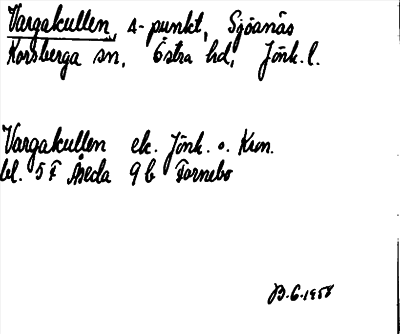 Vargakullen, A-punkt, Sjöanäs
Korsberga sn, Östra hd, Jönk. l.
Vargakullen ek. Jönk. o. Kron.
bl. 5 F Åseda 9 b Farnebo
B. G. 1958